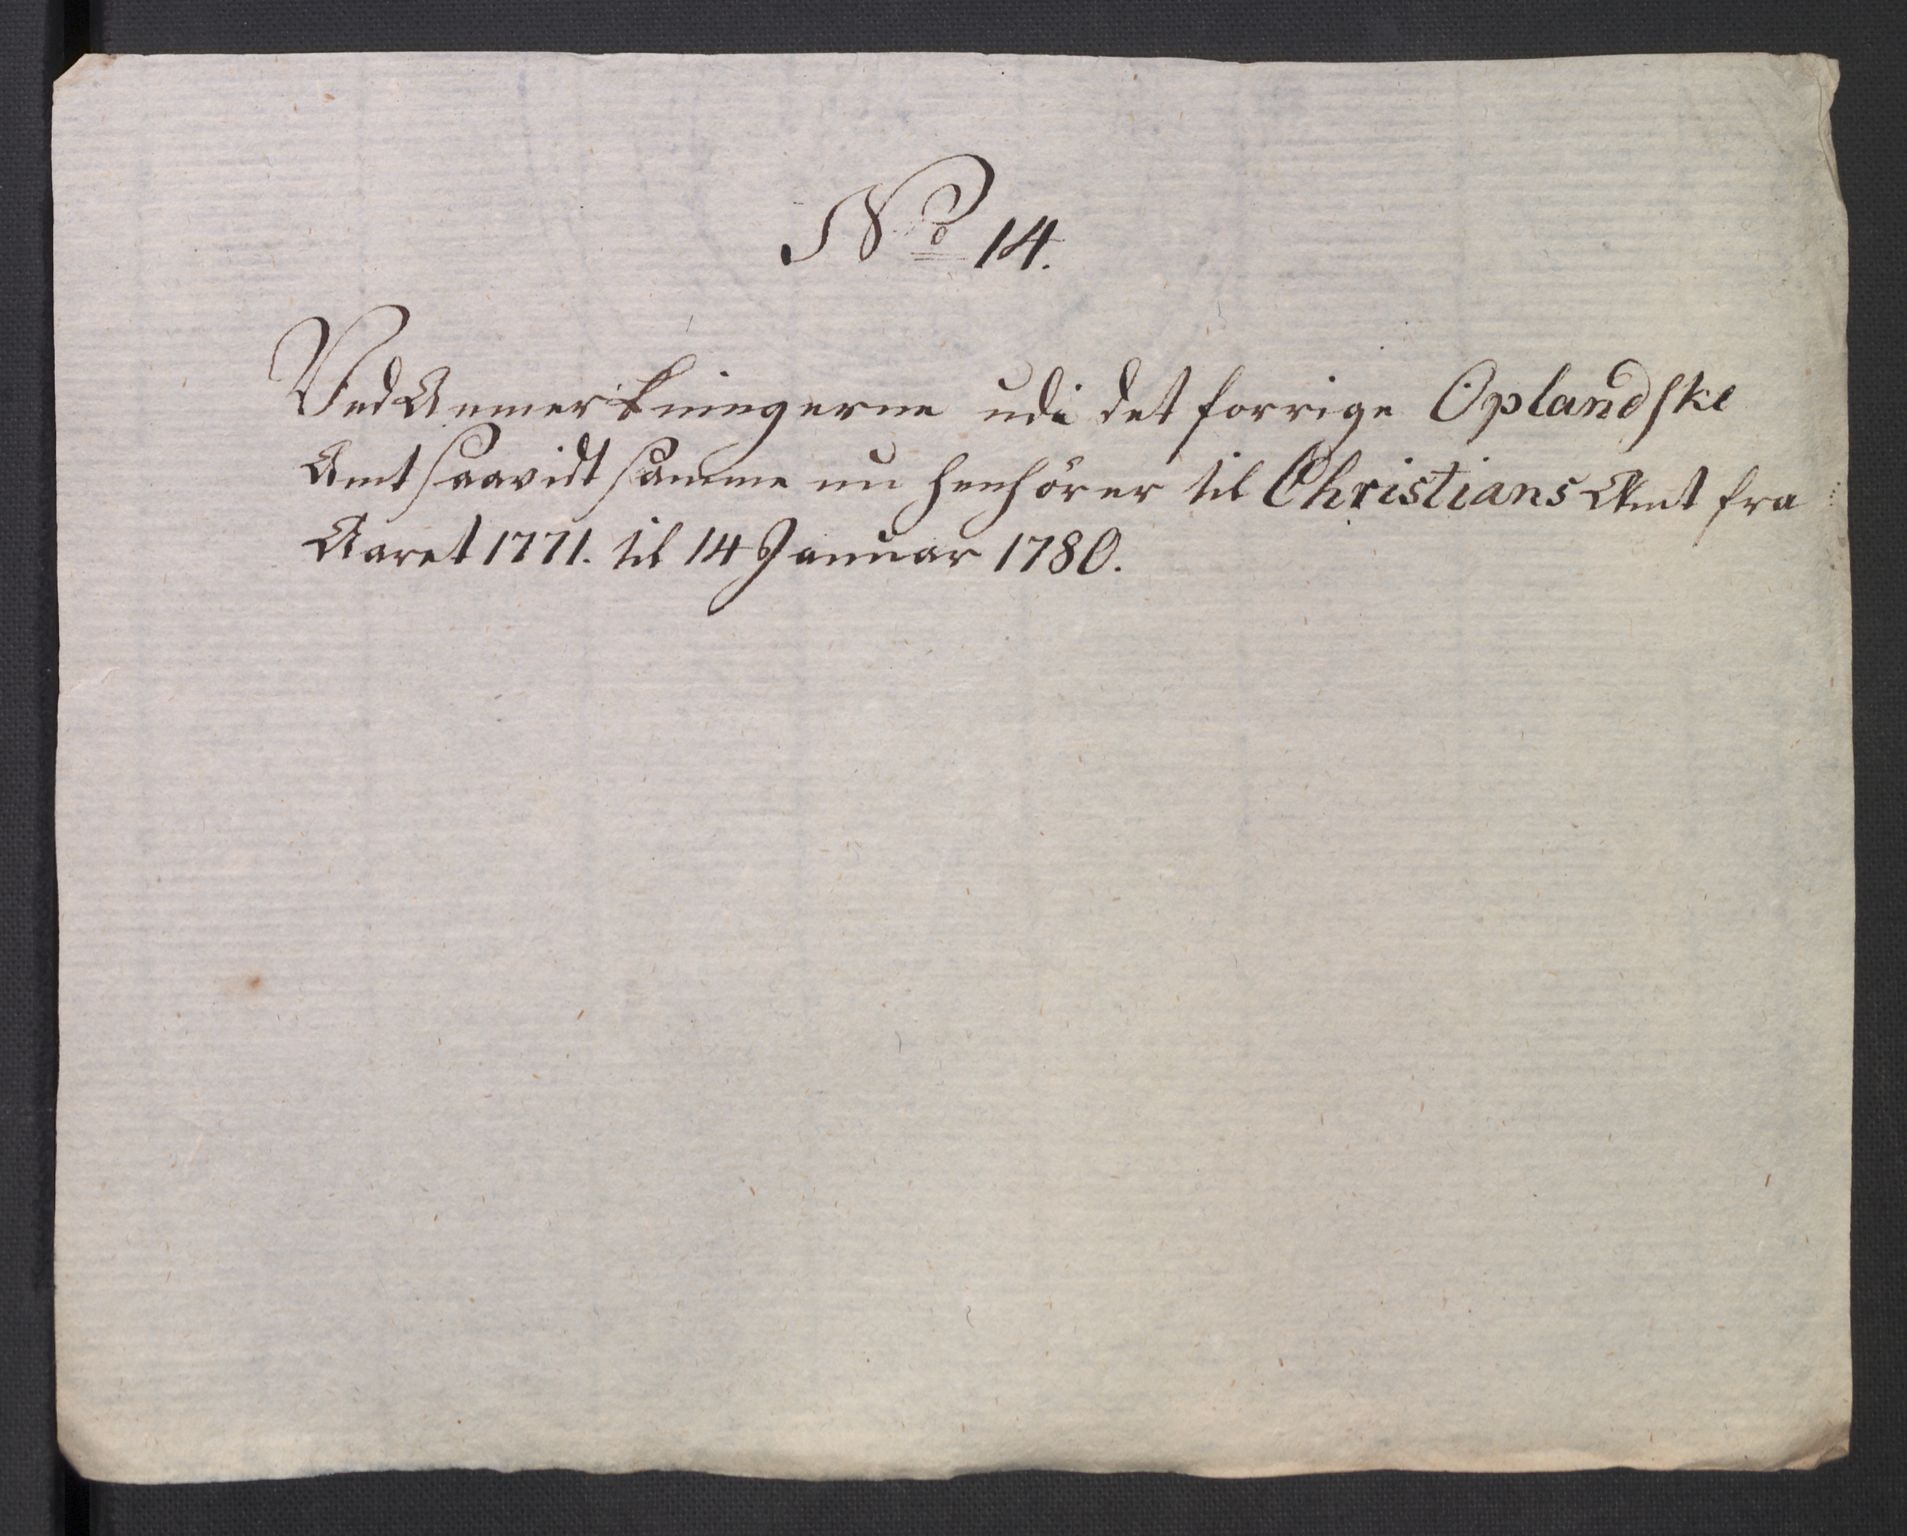 No 14.
Ved Anmerkningerne udi det forrige Oplandske
Amt saavidt samme nu henhörer til Christians Amt fra
Aaret 1771. til 14 Januar 1780.